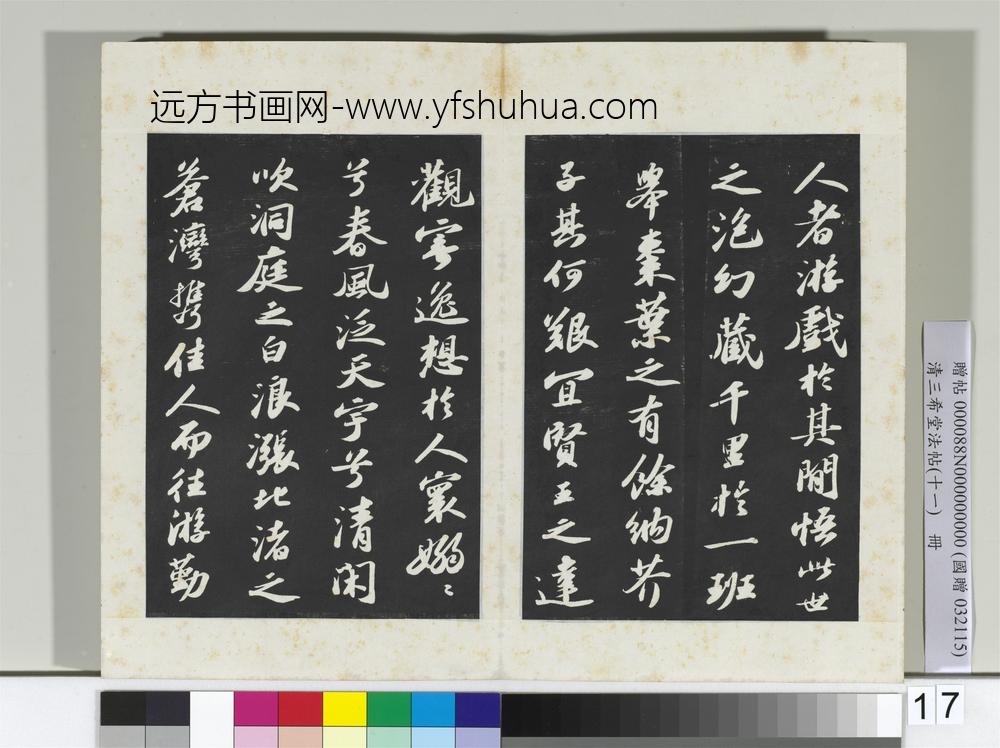 远方书画网-www.yfshuhua.com
人者游戲於其閒悟此世
之泡幻藏千里於一班
舉棗葉之有餘納芥
子其何艱宜賢王之達
觀寄逸想於人寰嫋〻
兮春風泛天宇兮清閑
吹洞庭之白浪漲北渚之
蒼灣携佳人而往游勤
贈帖 000088N000000000 (國贈 032115)
清三希堂法帖(十一) 冊
17